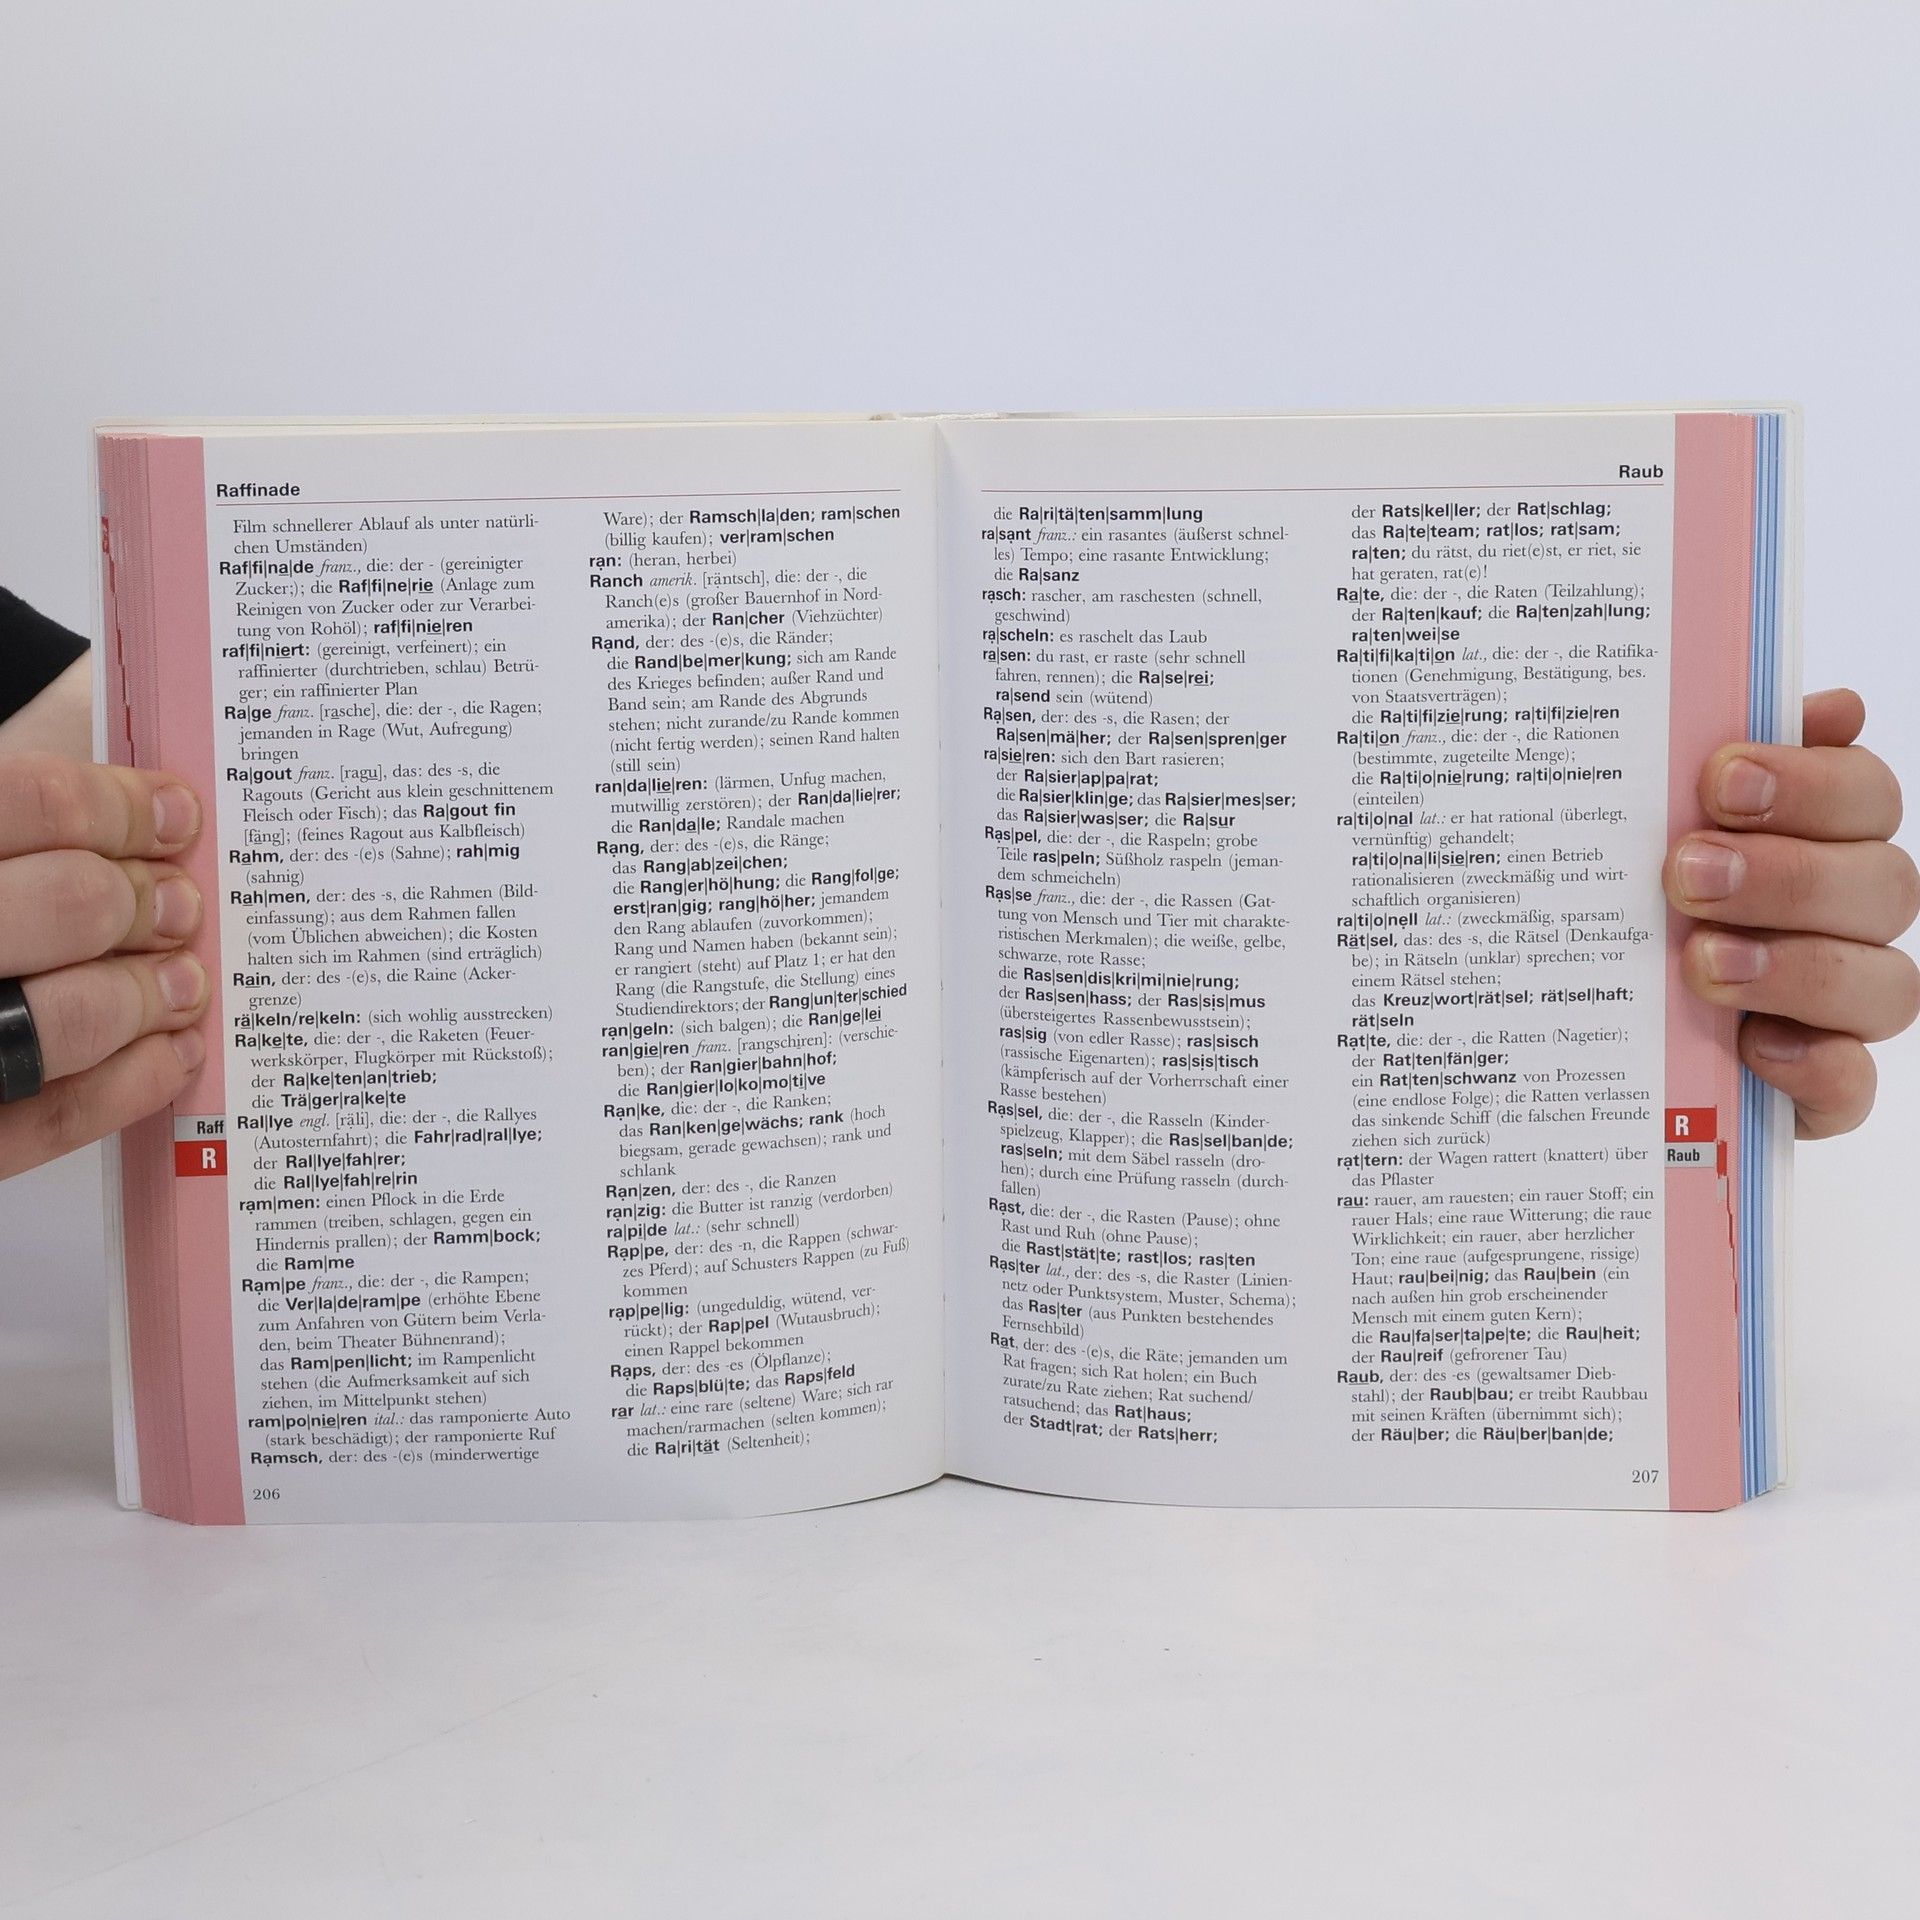 Raffinade
Film schnellerer Ablauf als unter natürli-
chen Umständen)
Raf|fi|na|de franz., die: der - (gereinigter
Zucker;); die Raf|fi|ne|rie (Anlage zum
Reinigen von Zucker oder zur Verarbei-
tung von Rohöl); raf|fi|nie|ren
raf|fi|niert: (gereinigt, verfeinert); ein
raffinierter (durchtrieben, schlau) Betrü-
ger; ein raffinierter Plan
Ra|ge franz. [rasche], die: der -, die Ragen;
jemanden in Rage (Wut, Aufregung)
bringen
Ra|gout franz. [ragu], das: des -s, die
Ragouts (Gericht aus klein geschnittenem
Fleisch oder Fisch); das Ra|gout fin
[fäng]; (feines Ragout aus Kalbfleisch)
Rahm, der: des -(e)s (Sahne); rah|mig
(sahnig)
Rah|men, der: des -s, die Rahmen (Bild-
einfassung); aus dem Rahmen fallen
(vom Üblichen abweichen); die Kosten
halten sich im Rahmen (sind erträglich)
Rain, der: des -(e)s, die Raine (Acker-
grenze)
rä|keln/re|keln: (sich wohlig ausstrecken)
Ra|ke|te, die: der -, die Raketen (Feuer-
werkskörper, Flugkörper mit Rückstoß);
der Ra|ke|ten|an|trieb;
die Trä|ger|ra|ke|te
Ral|lye engl. [räli], die: der -, die Rallyes
(Autosternfahrt); die Fahr|rad|ral|lye;
der Ral|lye|fah|rer;
die Ral|lye|fah|re|rin
ram|men: einen Pflock in die Erde
rammen (treiben, schlagen, gegen ein
Hindernis prallen); der Ramm|bock;
die Ram|me
Ram|pe franz., die: der -, die Rampen;
die Ver|la|de|ram|pe (erhöhte Ebene
zum Anfahren von Gütern beim Verla-
den, beim Theater Bühnenrand);
das Ram|pen|licht; im Rampenlicht
stehen (die Aufmerksamkeit auf sich
ziehen, im Mittelpunkt stehen)
ram|po|nie|ren ital.: das ramponierte Auto
(stark beschädigt); der ramponierte Ruf
Ramsch, der: des -(e)s (minderwertige
206
Raff
R
Ware); der Ramsch|la|den; ram|schen
(billig kaufen); ver|ram|schen
ran: (heran, herbei)
Ranch amerik. [räntsch], die: der -, die
Ranch(e)s (großer Bauernhof in Nord-
amerika); der Ran|cher (Viehzüchter)
Rand, der: des -(e)s, die Ränder;
die Rand|be|mer|kung; sich am Rande
des Krieges befinden; außer Rand und
Band sein; am Rande des Abgrunds
stehen; nicht zurande/zu Rande kommen
(nicht fertig werden); seinen Rand halten
(still sein)
ran|da|lie|ren: (lärmen, Unfug machen,
mutwillig zerstören); der Ran|da|lie|rer;
die Ran|da|le; Randale machen
Rang, der: des -(e)s, die Ränge;
das Rang|ab|zei|chen;
die Rang|er|hö|hung; die Rang|fol|ge;
erst|ran|gig; rang|hö|her; jemandem
den Rang ablaufen (zuvorkommen);
Rang und Namen haben (bekannt sein);
er rangiert (steht) auf Platz 1; er hat den
Rang (die Rangstufe, die Stellung) eines
Studiendirektors; der Rang|un|ter|schied
ran|geln: (sich balgen); die Ran|ge|lei
ran|gie|ren franz. [rangschiren]: (verschie-
ben); der Ran|gier|bahn|hof;
die Ran|gier|lo|ko|mo|ti|ve
Ran|ke, die: der -, die Ranken;
das Ran|ken|ge|wächs; rank (hoch
biegsam, gerade gewachsen); rank und
schlank
Ran|zen, der: des -, die Ranzen
ran|zig: die Butter ist ranzig (verdorben)
ra|pi|de lat.: (sehr schnell)
Rap|pe, der: des -n, die Rappen (schwar-
zes Pferd); auf Schusters Rappen (zu Fuß)
kommen
rap|pe|lig: (ungeduldig, wütend, ver-
rückt); der Rap|pel (Wutausbruch);
einen Rappel bekommen
Raps, der: des -es (Ölpflanze);
die Raps|blü|te; das Raps|feld
rar lat.: eine rare (seltene) Ware; sich rar
machen/rarmachen (selten kommen);
die Ra|ri|tät (Seltenheit);
Raub
die Ra|ri|tä|ten|samm|lung
ra|sant franz.: ein rasantes (äußerst schnel-
les) Tempo; eine rasante Entwicklung;
die Ra|sanz
rasch: rascher, am raschesten (schnell,
geschwind)
ra|scheln: es raschelt das Laub
ra|sen: du rast, er raste (sehr schnell
fahren, rennen); die Ra|se|rei;
ra|send sein (wütend)
Ra|sen, der: des -s, die Rasen; der
Ra|sen|mä|her; der Ra|sen|spren|ger
ra|sie|ren: sich den Bart rasieren;
der Ra|sier|ap|pa|rat;
die Ra|sier|klin|ge; das Ra|sier|mes|ser;
das Ra|sier|was|ser; die Ra|sur
Ras|pel, die: der -, die Raspeln; grobe
Teile ras|peln; Süßholz raspeln (jeman-
dem schmeicheln)
Ras|se franz., die: der -, die Rassen (Gat-
tung von Mensch und Tier mit charakte-
ristischen Merkmalen); die weiße, gelbe,
schwarze, rote Rasse;
die Ras|sen|dis|kri|mi|nie|rung;
der Ras|sen|hass; der Ras|sis|mus
(übersteigertes Rassenbewusstsein);
ras|sig (von edler Rasse); ras|sisch
(rassische Eigenarten); ras|sis|tisch
(kämpferisch auf der Vorherrschaft einer
Rasse bestehen)
Ras|sel, die: der -, die Rasseln (Kinder-
spielzeug, Klapper); die Ras|sel|ban|de;
ras|seln; mit dem Säbel rasseln (dro-
hen); durch eine Prüfung rasseln (durch-
fallen)
Rast, die: der -, die Rasten (Pause); ohne
Rast und Ruh (ohne Pause);
die Rast|stät|te; rast|los; ras|ten
Ras|ter lat., der: des -s, die Raster (Linien-
netz oder Punktsystem, Muster, Schema);
das Ras|ter (aus Punkten bestehendes
Fernsehbild)
Rat, der: des -(e)s, die Räte; jemanden um
Rat fragen; sich Rat holen; ein Buch
zurate/zu Rate ziehen; Rat suchend/
ratsuchend; das Rat|haus;
der Stadt|rat; der Rats|herr;
der Rats|kel|ler; der Rat|schlag;
das Ra|te|team; rat|los; rat|sam;
ra|ten; du rätst, du riet(e)st, er riet, sie
hat geraten, rat(e)!
Ra|te, die: der -, die Raten (Teilzahlung);
der Ra|ten|kauf; die Ra|ten|zah|lung;
ra|ten|wei|se
Ra|ti|fi|ka|ti|on lat., die: der -, die Ratifika-
tionen (Genehmigung, Bestätigung, bes.
von Staatsverträgen);
die Ra|ti|fi|zie|rung; ra|ti|fi|zie|ren
Ra|ti|on franz., die: der -, die Rationen
(bestimmte, zugeteilte Menge);
die Ra|ti|o|nie|rung; ra|ti|o|nie|ren
(einteilen)
ra|ti|o|nal lat.: er hat rational (überlegt,
vernünftig) gehandelt;
ra|ti|o|na|li|sie|ren; einen Betrieb
rationalisieren (zweckmäßig und wirt-
schaftlich organisieren)
ra|ti|o|nell lat.: (zweckmäßig, sparsam)
Rät|sel, das: des -s, die Rätsel (Denkaufga-
be); in Rätseln (unklar) sprechen; vor
einem Rätsel stehen;
das Kreuz|wort|rät|sel; rät|sel|haft;
rät|seln
Rat|te, die: der -, die Ratten (Nagetier);
der Rat|ten|fän|ger;
ein Rat|ten|schwanz von Prozessen
(eine endlose Folge); die Ratten verlassen
das sinkende Schiff (die falschen Freunde
ziehen sich zurück)
rat|tern: der Wagen rattert (knattert) über
das Pflaster
rau: rauer, am rauesten; ein rauer Stoff; ein
rauer Hals; eine raue Witterung; die raue
Wirklichkeit; ein rauer, aber herzlicher
Ton; eine raue (aufgesprungene, rissige)
Haut; rau|bei|nig; das Rau|bein (ein
nach außen hin grob erscheinender
Mensch mit einem guten Kern);
die Rau|fa|ser|ta|pe|te; die Rau|heit;
der Rau|reif (gefrorener Tau)
Raub, der: des -es (gewaltsamer Dieb-
stahl); der Raub|bau; er treibt Raubbau
mit seinen Kräften (übernimmt sich);
der Räu|ber; die Räu|ber|ban|de;
207
R
Raub